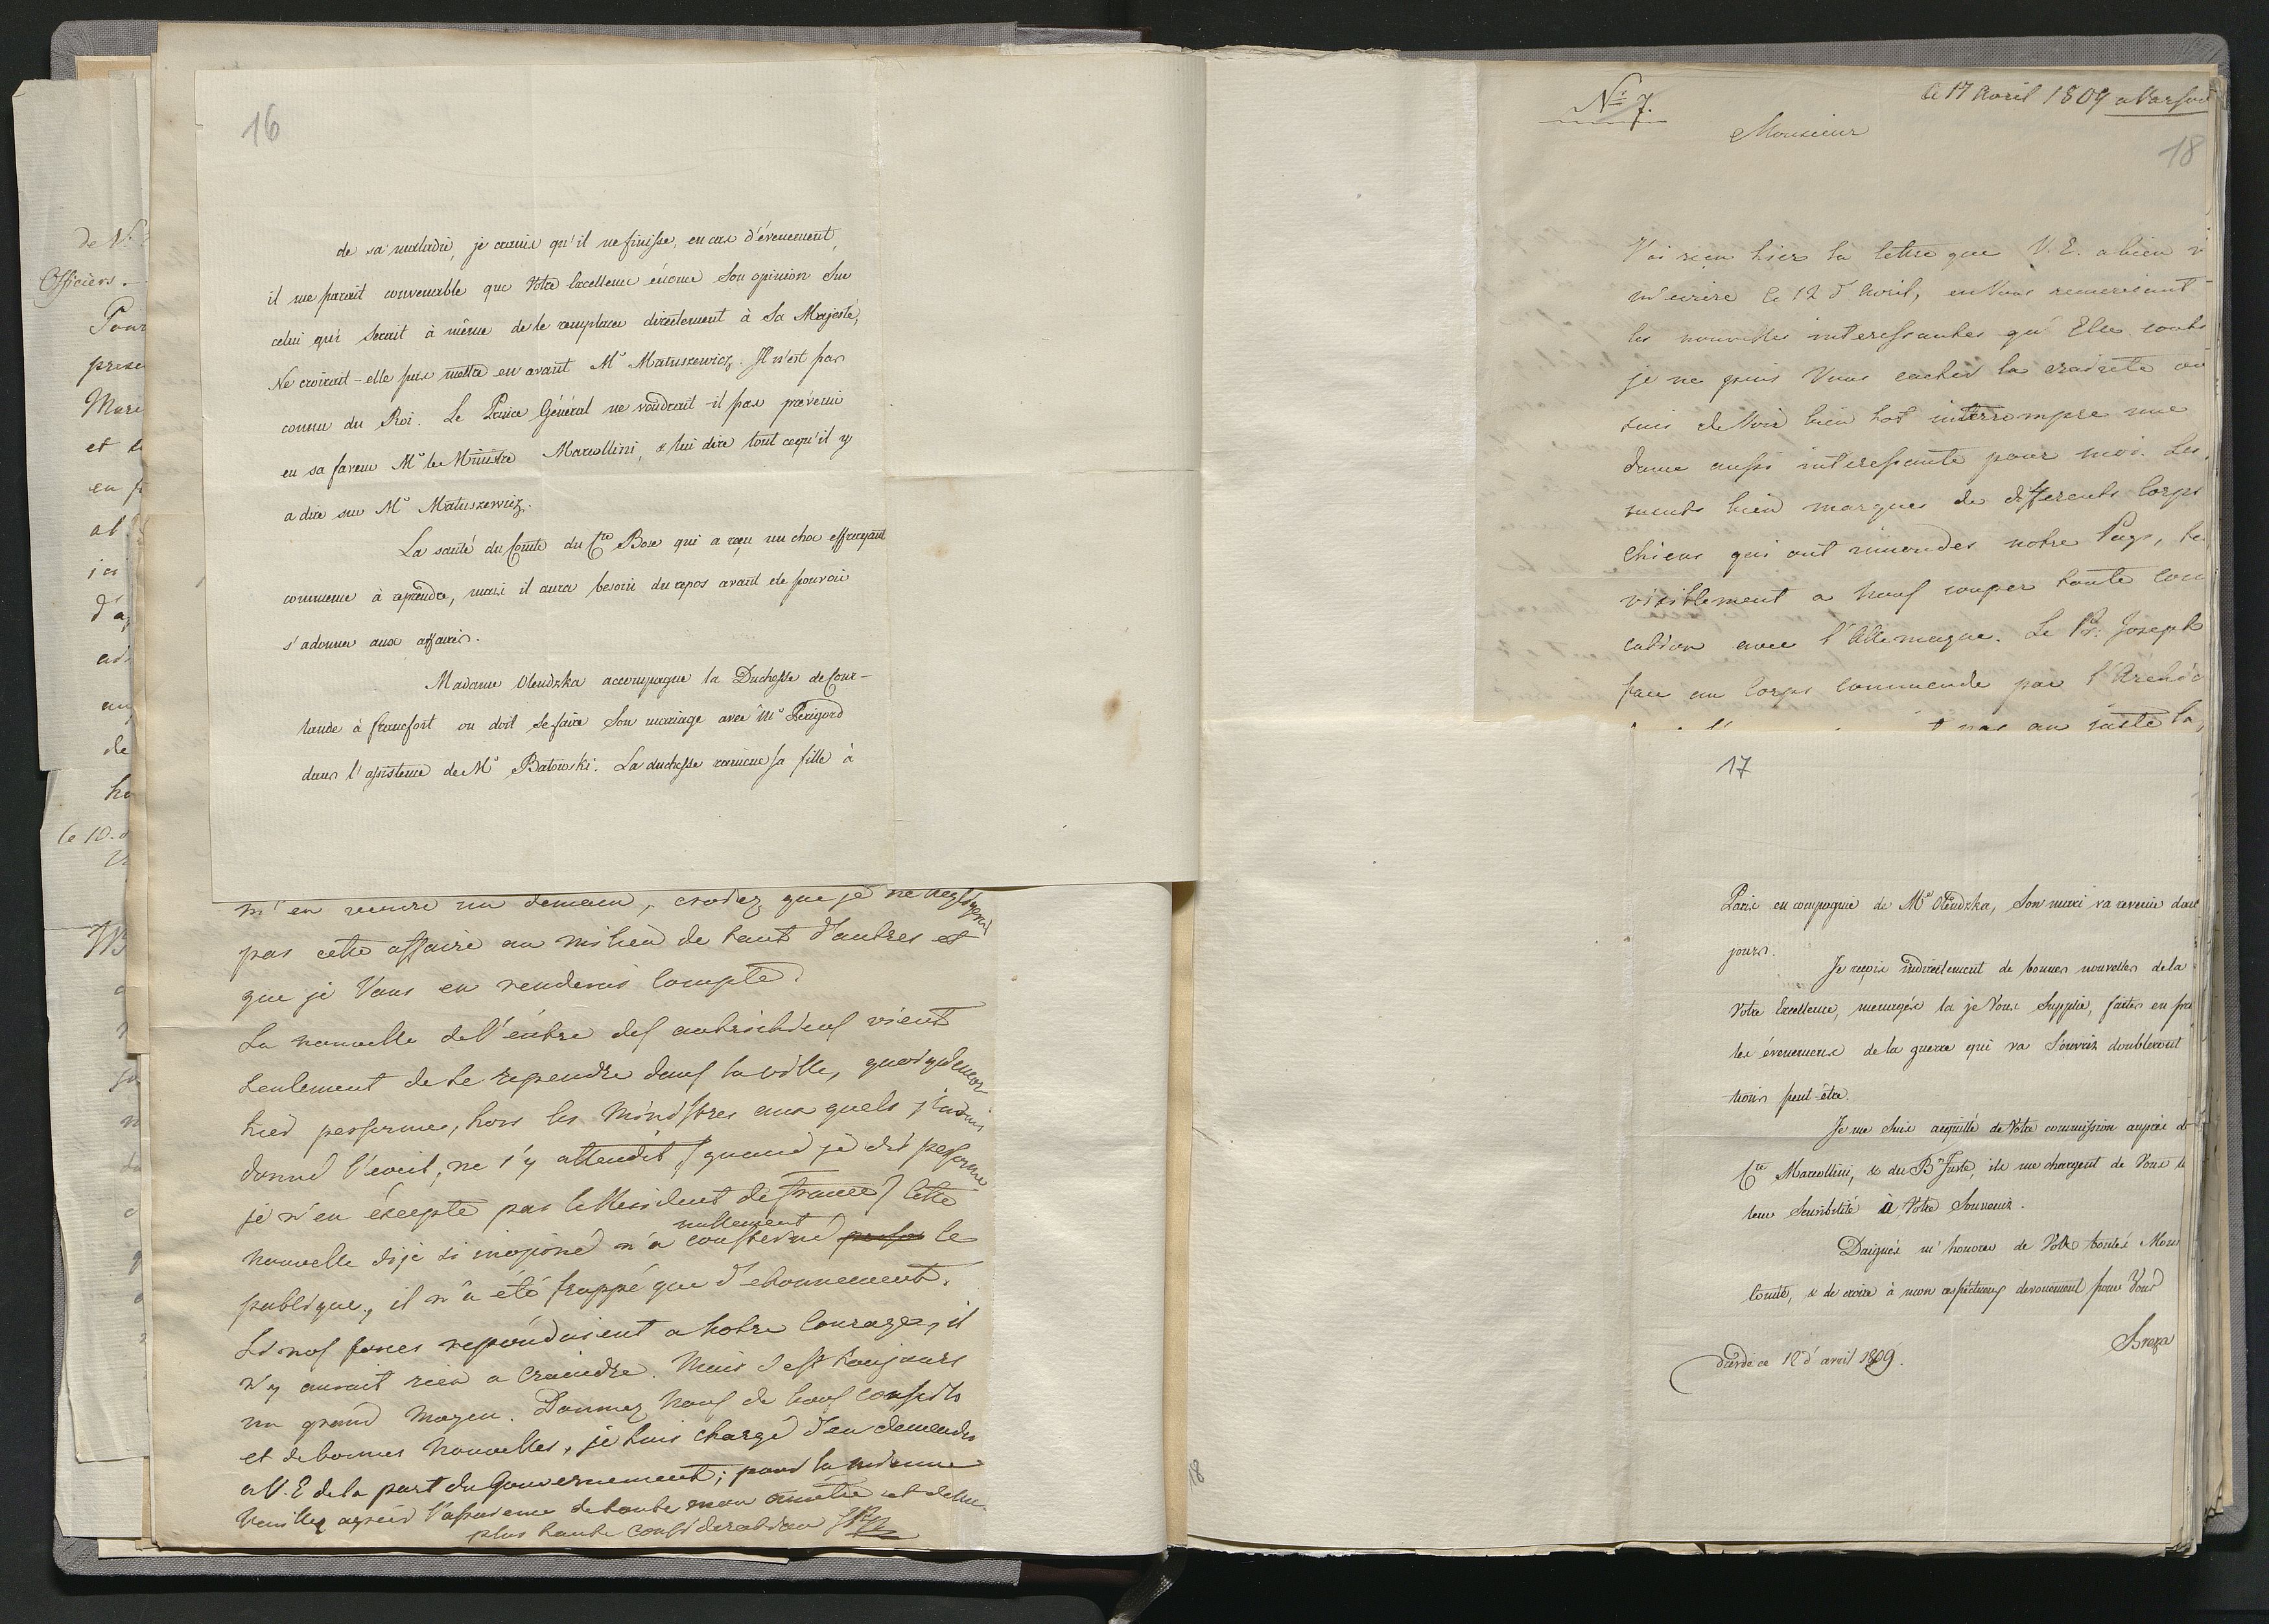 16
de sa maladie, je crains qu'il ne finisse, en cas d'évenement,
il me parait convenable que Votre Excellence énonce Son opinion sur
celui qui serait à même de le remplacer directement à Sa Majesté,
Ne croirait-elle pas mettre en avant Mr Matuszewicz. Il n'est pas
connu du Roi. Le Prince Général ne voudrait-il pas prévenir
en sa faveur Mr le Ministre Marcollini, & lui dire tout ce qu'il y
a dire sur Mr Matuszewicz.
La santé du Comte du Cte Bose qui a reçu un choc effrayant
commence à reprendre, mais il aura besoin du repos avant de pouvoir
s'adonner aux affaires.
Madame Olendzka accompagne la Duchesse de Cour-
lande à francfort ou doit se faire Son mariage avec Mr Perigord
dans l'assistence de Mr Batowski. La duchesse ramene sa fille à
m'en reuvre un demain, croiez que je ne negligerai
pas cette affaire au milieu de tant d'autres et
que je Vous en renderais Compte.
La nouvelle de l'entre des autrichiens vient
seulement de se rependre dans la ville, quoique
hier personne, hors les Ministres aux quels j'avais
donné l'eveil, ne s'y attendit (quand je dis personne
je n'en éxcepte pas le Resident de france) Cette
nullement
nouvelle dije si inopiné n'a consterné le
publique, il n'a été frappé que d'etonnement.
Si nos forces repondaient a notre Courage, il
n'y aurait rien a Craindre. Mais c'est toujours
un grand moyen. Donnez nous de bons conseils
et de bonnes nouvelles, je suis chargé d'en demender
a V. E de la part du Gouvernement; pour la mienne
Veuillez agréér l'assurence de toute mon amitie et de la
plus haute consideration
de V.
Officiers.
Pour
et
en
le 10.
No 7.
le 17 Avril 1809 a Varsov
Monsieur
18
J'ai reçu hier la lettre que V. E. a bien v
m'ecrire le 12 d'Avril, en Vous remerciant
les nouvelles interessantes qu'Elle contie
je ne puis Vous cacher la crainte ou
suis de Voir bien tot interrompre une
dance aussi interessante pour moi. Les
ments bien marqués de differents Corps
chiens qui ont innondés notre Pays, te
visiblement a nous couper toute Com
cation avec l'Allemagne. Le Pr: Joseph
face au Corps commendé par l'Archid
pas au juste la
17
Paris en compagnie de Me Olendzka, Son mari va revenir dans
jours.
Je reçois indirectement de bonnes nouvelles de la
Votre Excellence, menagés la je Vous Supplie, faites en pra
les évenemens de la guerre qui va S'ouvrir doubleront
tions peut-être.
Je me Suis acquitté de Votre commission auprès d
Cte Marcollini, & du Bn Just, ils me chargent de Vous te
leur Sensibilité à Votre Souvenir.
Daignés m'honorer de Vos bontés Mons
Comte, & de croire à mon respectueux devouement pour Vous
Breza
dresde ce 12 d'avril 1809.
18